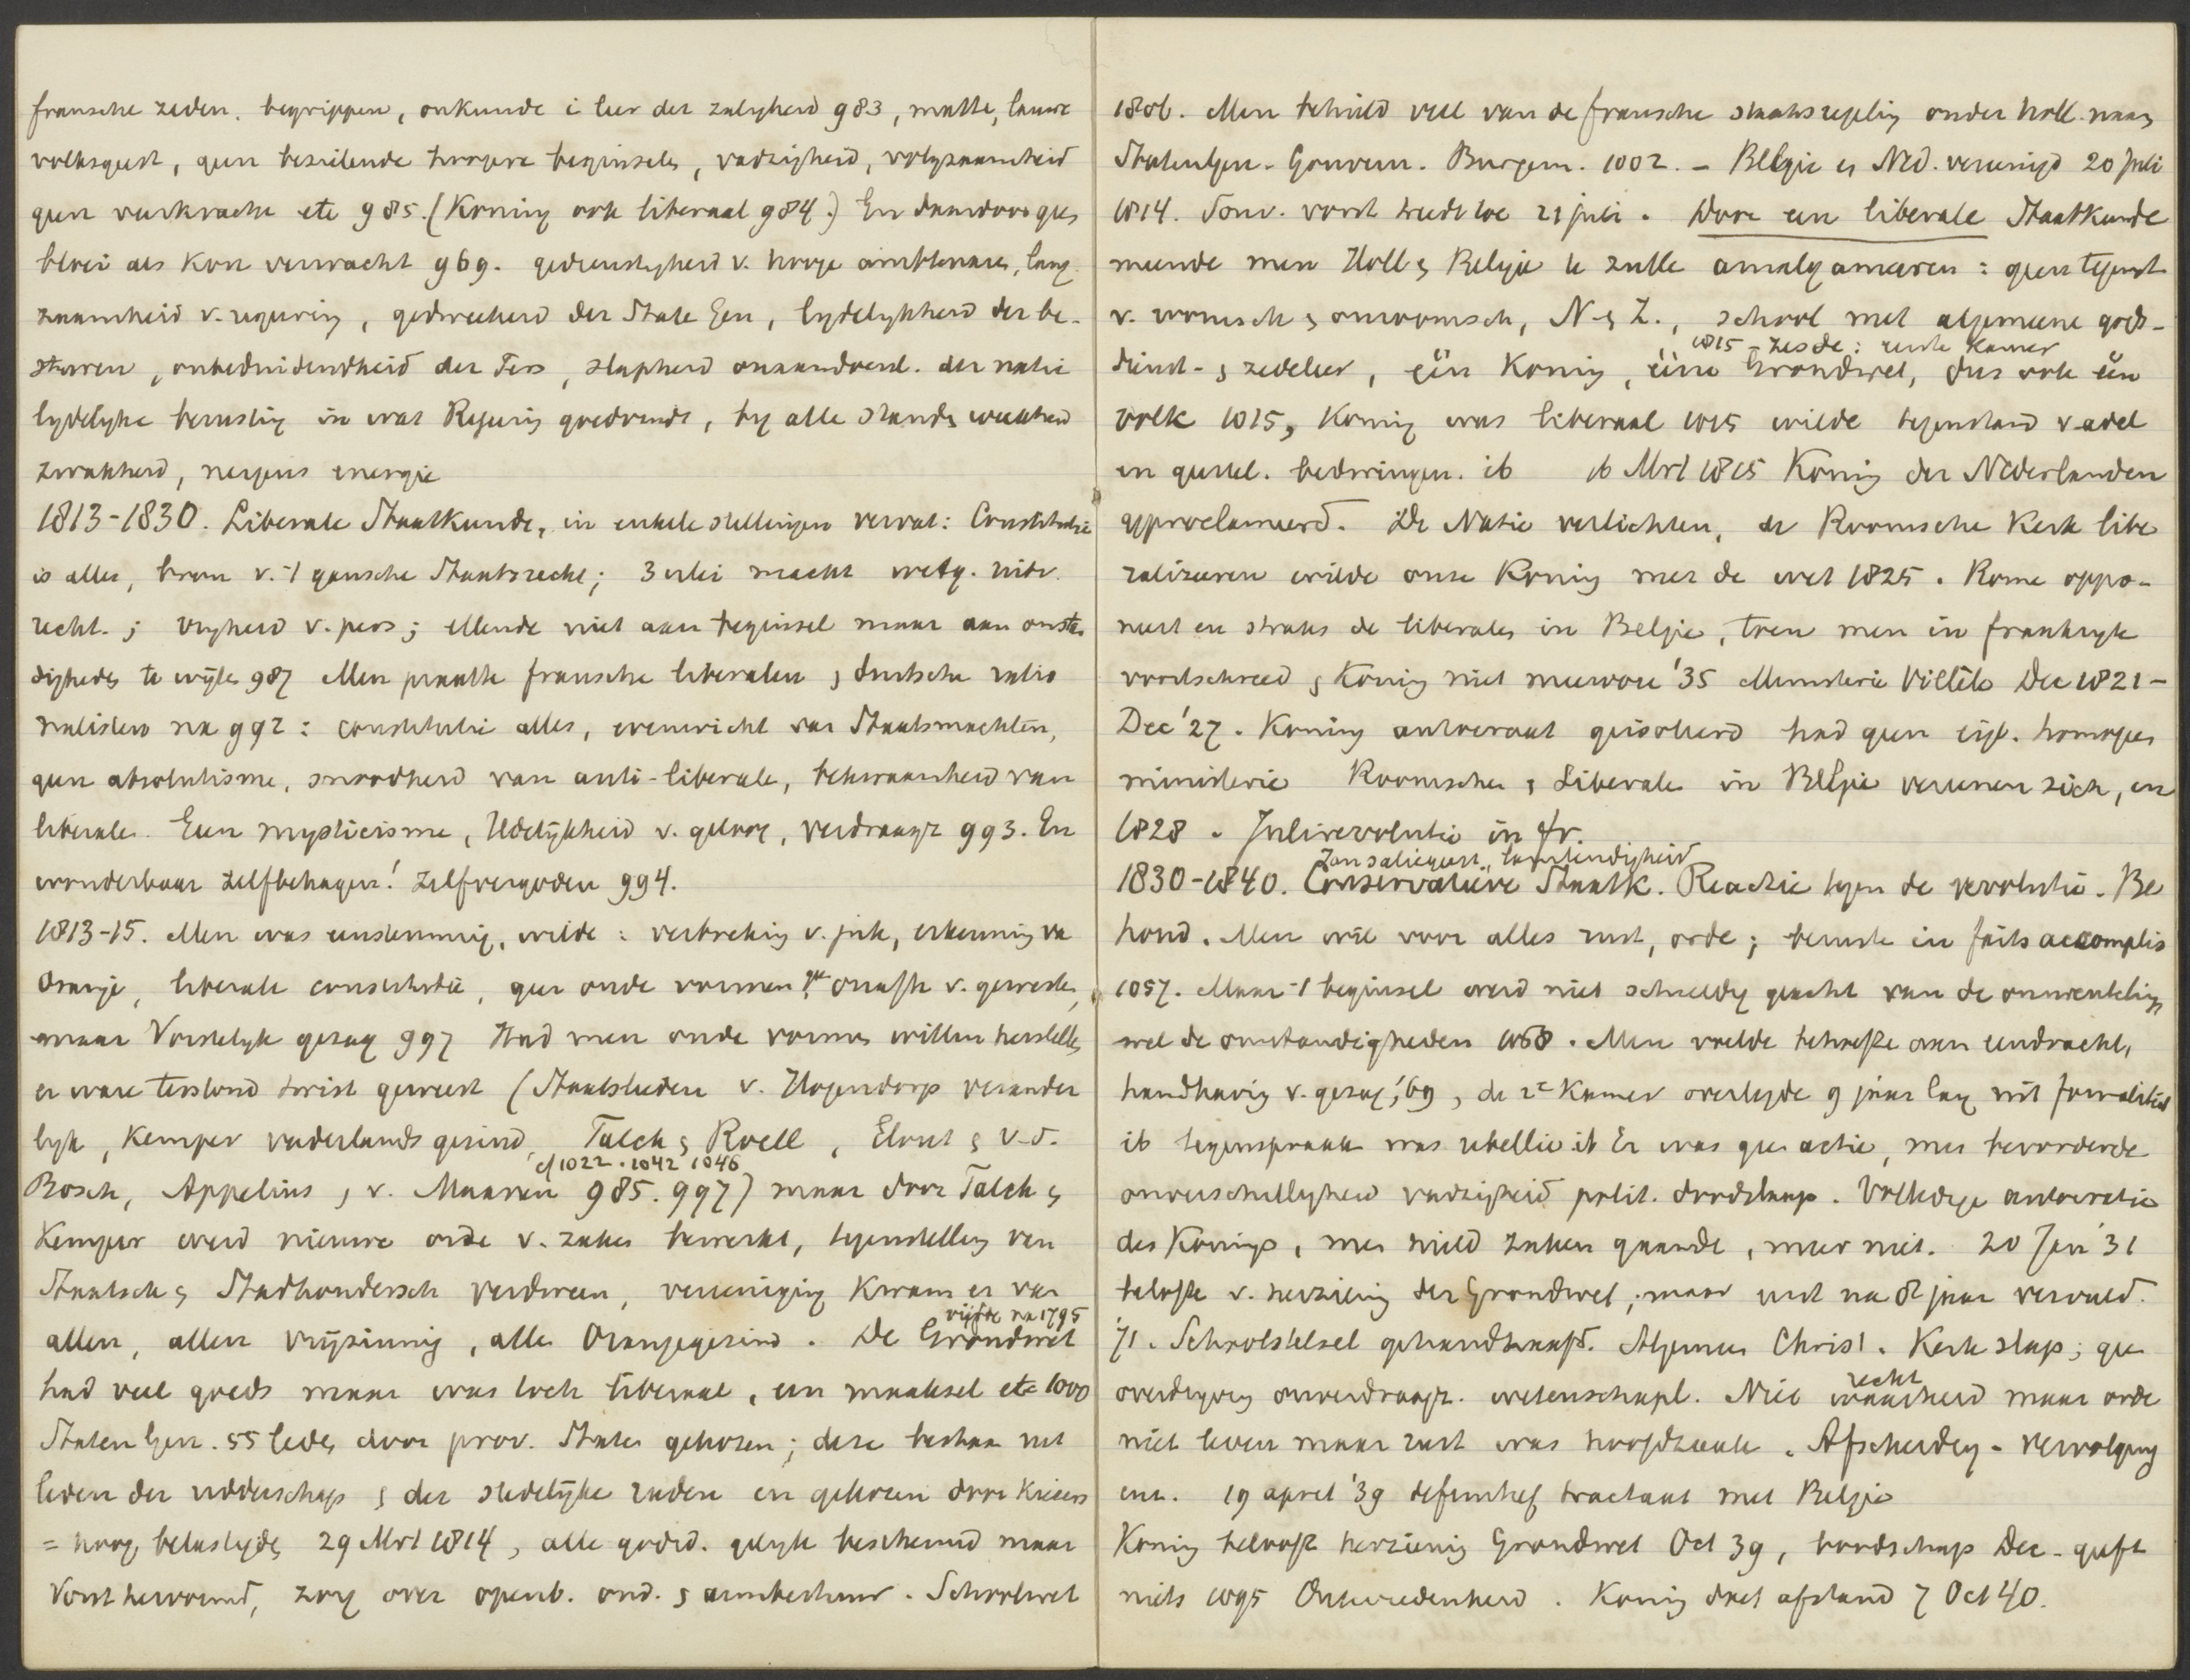 fransche zeden. begrippen, onkunde i leer der zaligheid 983, matte, lauwe
volksgeest, geen bezielende hoogere beginselen, vadzigheid, volgzaamheid
geen veerkracht etc 985. (Koning ook liberaal 984.) En daardoor geen
bloei als kon verwacht 969. gedienstigheid v. hooge ambtenaren, lang
zaamheid v. regering, gedweeheid der State Gen, lydelykheid der be-
sturen, onbeduidendheid der Pers, slapheid onaandoenl. der natie
lydelyke berusting in wat Regering goedvindt, by alle standen weekheid
zwakheid, nergens energie
1813-1830. Liberale Staatkunde, in enkele stellingen vervat: Constitutie
is alles, bron v. 't gansche Staatsrecht; 3 erlei macht wetg. uitv.
recht.; vryheid v. pers; ellende niet aan beginsel maar aan omstan
digheden te wijten 987 Men praatte fransche liberalen & duitsche ratio
nalisten na 992: constitutie alles, evenwicht van Staatsmachten,
geen absolutisme, snoodheid van anti-liberale, bekwaamheid van
liberalen. Geen mysticisme, Udelijkheid v. geloof, verdraagz 993. En
wonderbaar zelfbehagen! Zelfvergoden 994.
1813-15. Men was eenstemmig, wilde: verbreking v. juk, erkenning va
Oranje, liberale constitutie, geen oude vormen, onafh v. gewesten,
maar Vorstelyk gezag 997 Had men oude vormen willen herstellen
er ware terstond twist geweest (Staatslieden v. Hogendorp verander
lyk, Kemper vaderlandsgezind, Falck & Roell, Elout & v.d.
cf 1022. 1042 1046
Bosch, Appelius, v. Maanen 985. 997) maar door Falck &
Kemper werd nieuwe orde v. zaken bewerkt, tegenstelling van
Staatsch & Stadhoudersch verdween, vereeniging kwam er van
vijfde na 1795
allen, allen vrijzinnig, alle Oranjegezind. De Grondwet
had veel goeds maar was toch liberaal, een maaksel etc 1000
Staten Gen. 55 leden door prov. Staten gekozen; deze bestaan uit
leden der ridderschap & der stedelijke raden en gekozen door Kiezers
= hoog belastigden 29 Mrt 1814, alle godsd. gelyk beschermd maar
Vorst hervormd, zorg over openb. ond. & armbestuur. Schoolwet
1806. Men behield veel van de fransche staatsregeling onder holl. naam
Statenlgen. Gouvern. Burgem. 1002. - Belgie en Ned. vereenigd 20 juli
1814. Souv. vorst treedt toe 21 juli. Door een liberale Staatkunde
meende men Holl & Belgie te zullen amalgameeren: geen tegenst
v. roomsch & onroomsch, N. & Z., school met algemeene gods-
1815 - zesde: eerste Kamer
dienst- & zedeleer, één Koning, ééne Grondwet, dus ook één
volk 1015, Koning was liberaal 1015 wilde tegenstand v. adel
en geestel. bedwingen. ib 16 Mrt 1815 Koning der Nederlanden
geproclameerd. De Natie verlichten, de Roomsche Kerk libe
raliseeren wilde onze Koning met de wet 1825. Rome oppo-
neert en straks de liberalen in Belgie, toen men in frankryk
voortschreed & Koning niet meewou '35 Ministerie Villèle Dec 1821-
Dec '27. Koning autocraat geisoleerd had geen eig. homogeen
ministerie Roomschen & Liberalen in Belgie vereenen zich, en
1828. Julirevolutie in fr.
1830-1840. Conservatieve Staatk. Reactie tegen de revolutie. Be
houd. Men wil voor alles rust, orde; berust in faits accomplis
1057. Maar 't beginsel werd niet schuldig geacht van de omwenteling
wel de omstandigheden 1058. Men voelde behoefte aan eendracht,
handhaving v. gezag, '69, de 2e Kamer overlegde 9 jaar lang uit formaliteit
ib tegenspraak was rebellie ib Er was geen actie, men bevorderde
onverschilligheid vadzigheid polit. doodslaap. Volledige autocratie
des Konings, men hield zaken gaande, meer niet. 20 Jan '31
belofte v. herziening der Grondwet, maar eerst na 8 jaar vervuld.
'71. Schoolstelsel gehandhaafd. Algemeen Christ. Kerk slap; geen
overtuiging onverdraagz. wetenschapl. Niet waarheid maar orde
recht
niet leven maar rust was hoofdzaak. Afscheiding - vervolging
enz. 19 april '39 definitief tractaat met Belgie
Koning belooft herziening Grondwet Oct 39, boodschap Dec. geeft
niets 1095 Ontevredenheid. Koning doet afstand 7 Oct 40.